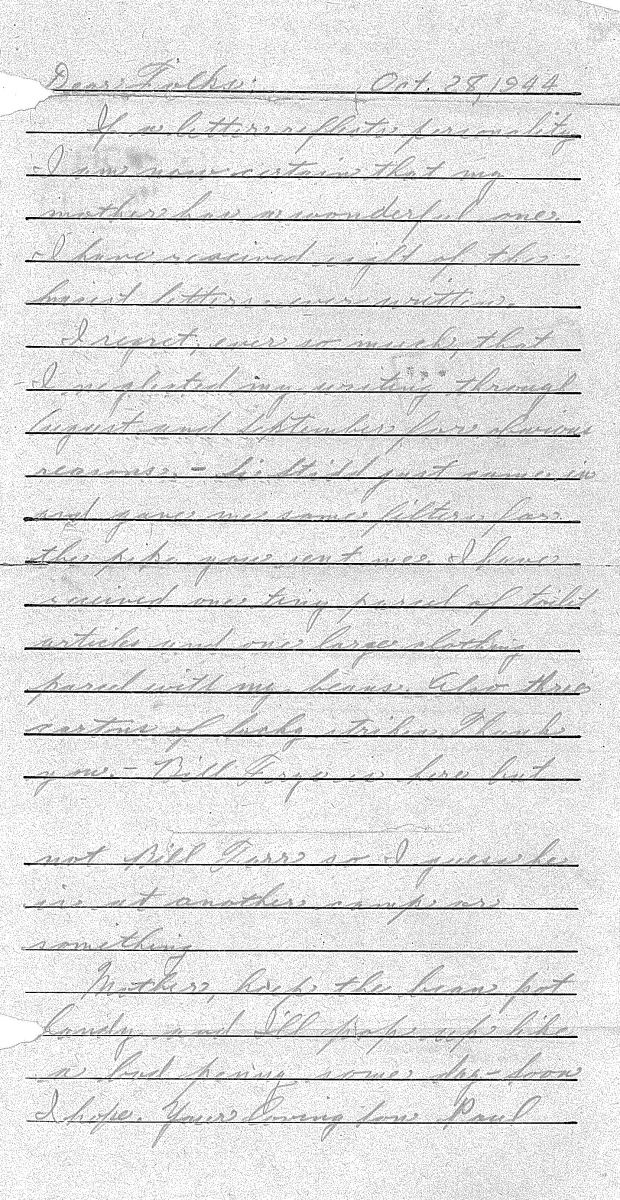 Dear Folks: Oct. 28, 1944
If a letter reflects personality
I am now certain that my
mother has a wonderful one.
I have received eight of the
letters ever written.
I regret, ever so much, that
I neglected my writing through
August and September for obvious
reasons. - just came in
and gave me some filters for
the pipe you sent me. I have
received one tiny parcel of toilet
articles and one large clothing
parcel with my beans. Also three
cartons of lucky strikes. Thank
you. - Bill is here but
not Bill Farr so I guess he
is at another camp or
something
Mother, keep the bean pot
handy and I'll pop up like
a bad penny some day - soon
I hope. Your loving son Paul